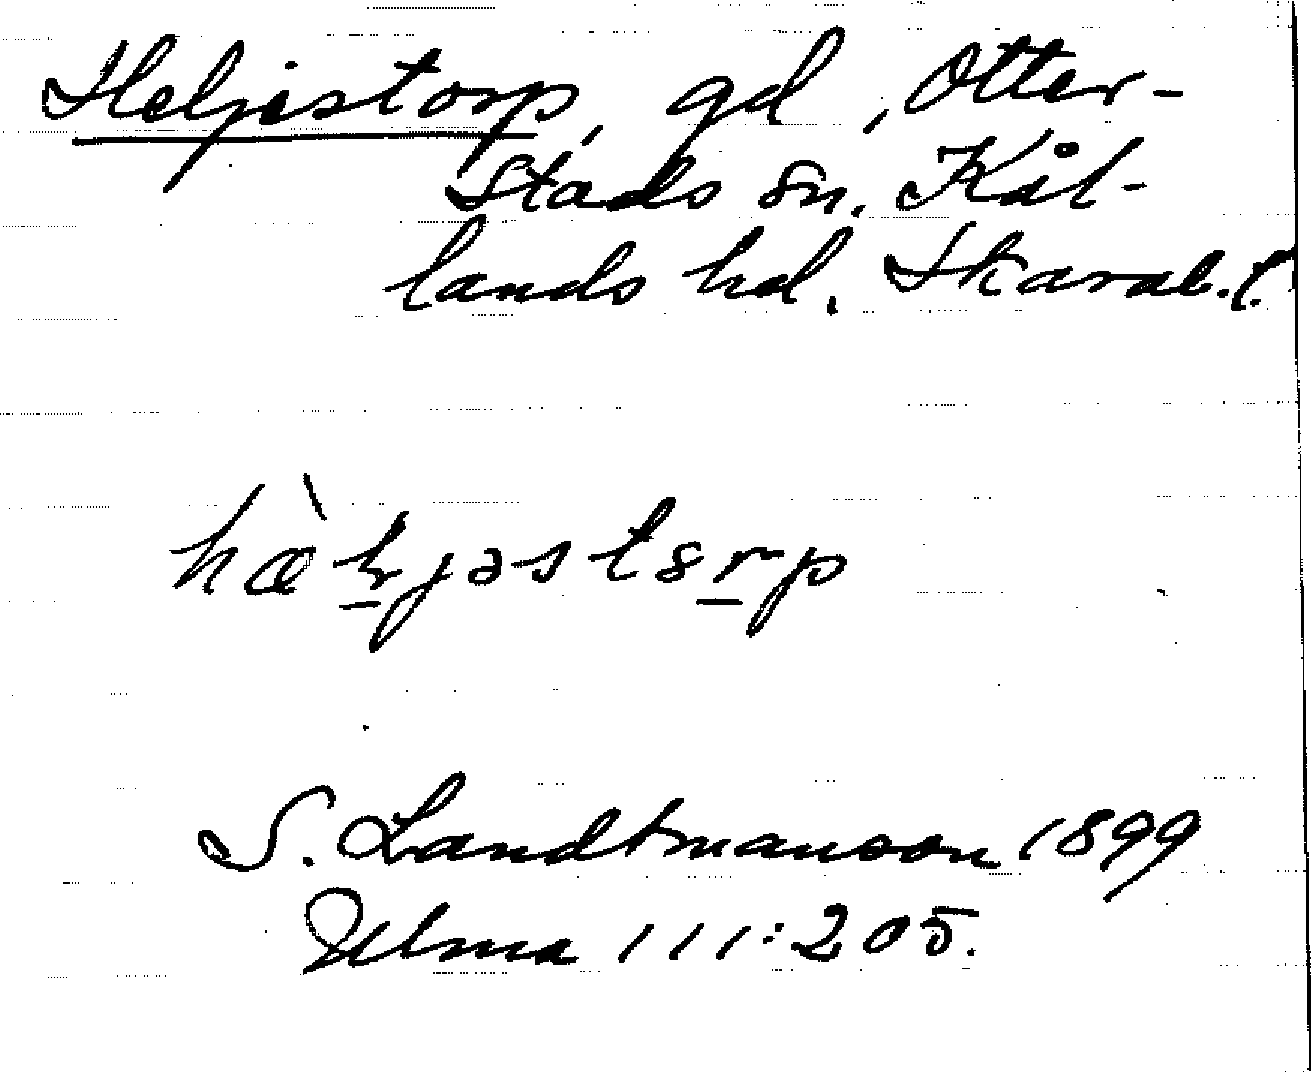 Heljestorp, gd, Otter-
stads sn. Kål-
lands hd. Skarab.l.
hæ̀ɽjəstorp
S. Landtmanson 1899
Ulma 111:205.